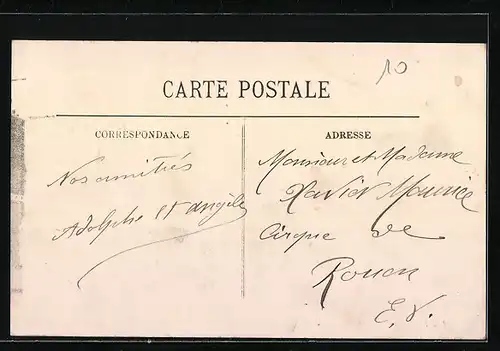 10
CARTE POSTALE
CORRESPONDANCE
Nos amitiés
Adolphe et angèle
ADRESSE
Monsieur et Madame
Xavier Maurice
Cirque de
Rouen
E. V.